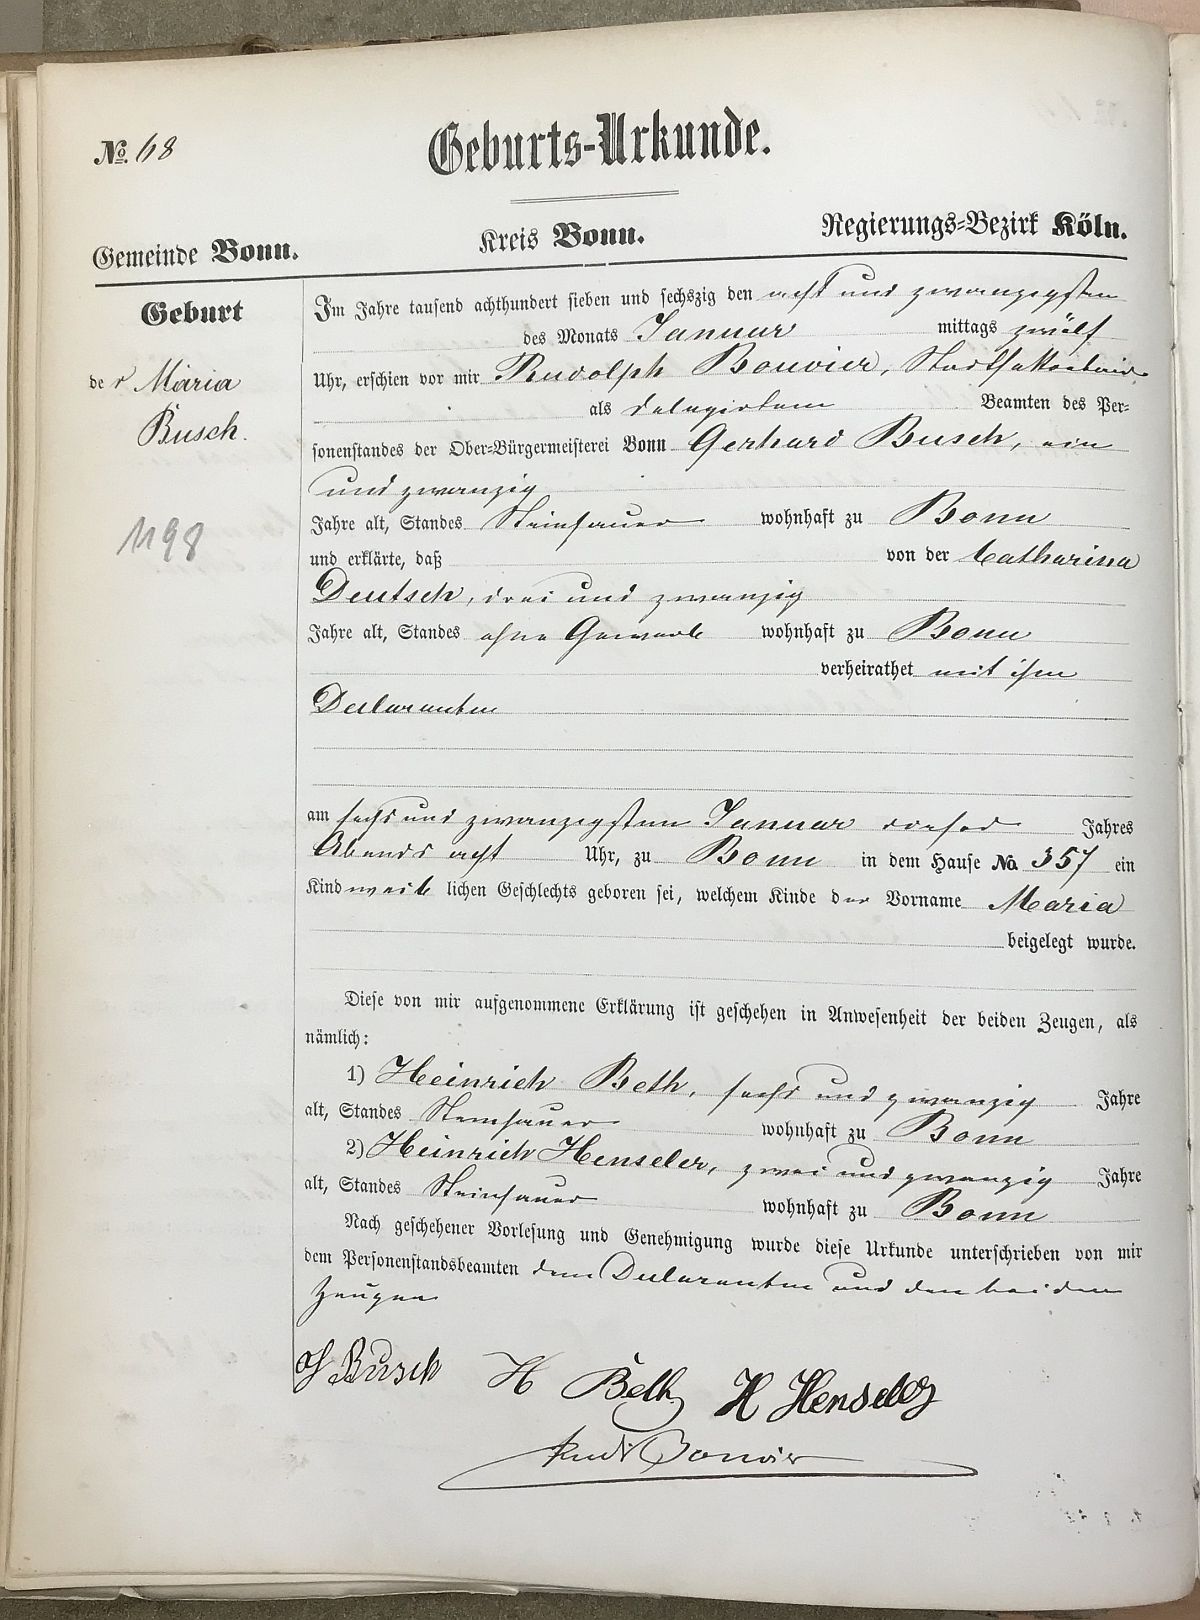 № 68
Geburts-Urkunde.
Gemeinde Bonn. Kreis Bonn. Regierungs-Bezirk Köln.
Geburt
der Maria
Busch.
1198
Im Jahre tausend achthundert sieben und sechszig den acht und zwanzigsten
des Monats Januar mittags zwölf
Uhr, erschien vor mir Rudolph Bouvier, Stadtsekretair
als delegirtem Beamten des Per-
sonenstandes der Ober-Bürgermeisterei Bonn Gerhard Busch, ein
und zwanzig
Jahre alt, Standes Steinhauer wohnhaft zu Bonn
und erklärte, daß von der Catharina
Deutsch, drei und zwanzig
Jahre alt, Standes ohne Gewerb wohnhaft zu Bonn
verheirathet mit ihm
Declaranten
am sechs und zwanzigsten Januar dieses Jahres
Abends acht Uhr, zu Bonn in dem Hause No. 357 ein
Kind weiblichen Geschlechts geboren sei, welchem Kinde der Vorname Maria
beigelegt wurde.
Diese von mir aufgenommene Erklärung ist geschehen in Anwesenheit der beiden Zeugen, als
nämlich:
1) Heinrich Beth, sechs und zwanzig Jahre
alt, Standes Steinhauer wohnhaft zu Bonn
2) Heinrich Henseler, zwei und zwanzig Jahre
alt, Standes Steinhauer wohnhaft zu Bonn
Nach geschehener Vorlesung und Genehmigung wurde diese Urkunde unterschrieben von mir
dem Personenstandsbeamten dem Declaranten und den beiden
Zeugen
G Busch H Beth H Henseler
Rud Bouvier